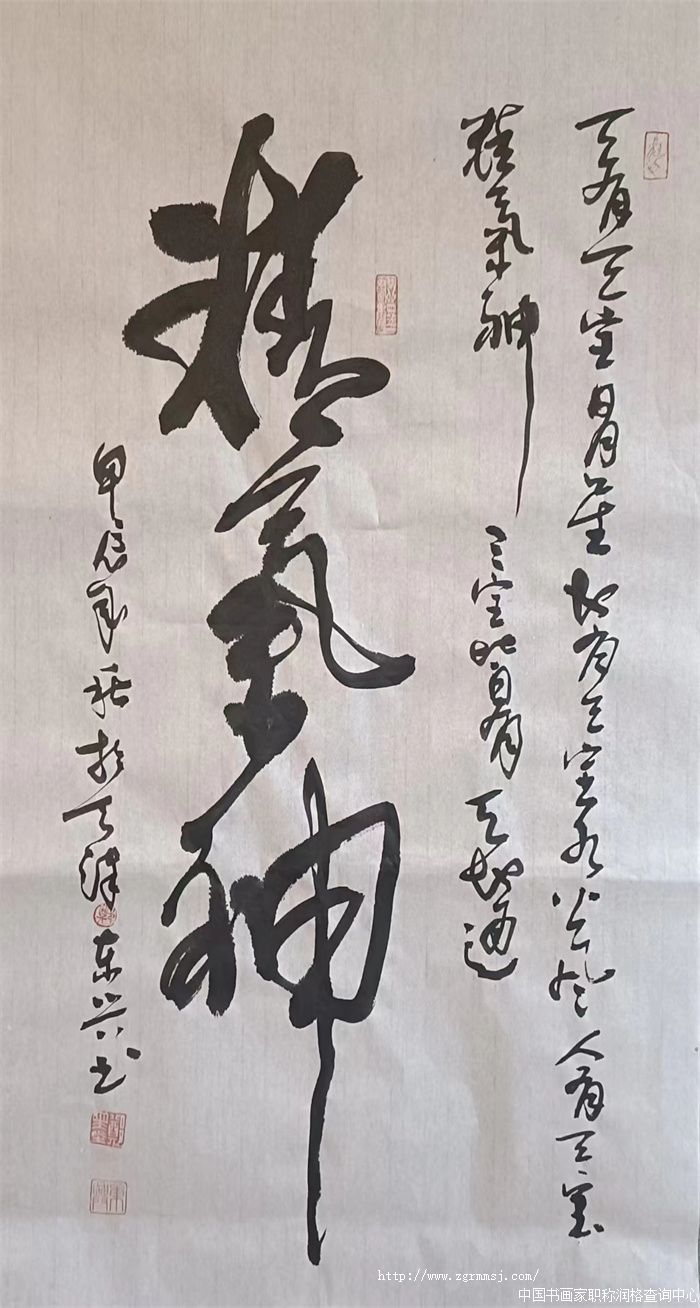 天有三宝日月星地有三宝水火风人有三宝
精氣神三宝皆具有天地通
精氣神
甲辰年秋於天津东兴书
http://www.zgrmmsj.com/
中国书画家职称润格查询中心